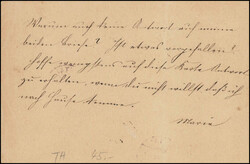 Warum auch keine Antwort auf meine
beiden Briefe? Ist etwas vorgefallen?
Hoffe wenigstens auf diese Karte Antwort
zu erhalten, wenn du nicht willst daß ich
nach Hause komme.
Marie
TA 45.-